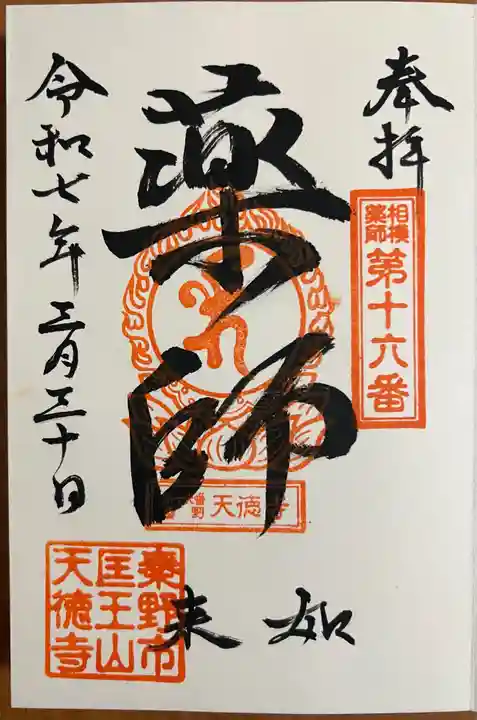 奉拝
相模
薬師
第十六番
薬師
如来
曽野
天徳寺
令和七年三月三十日
秦野市
匡王山
天徳寺